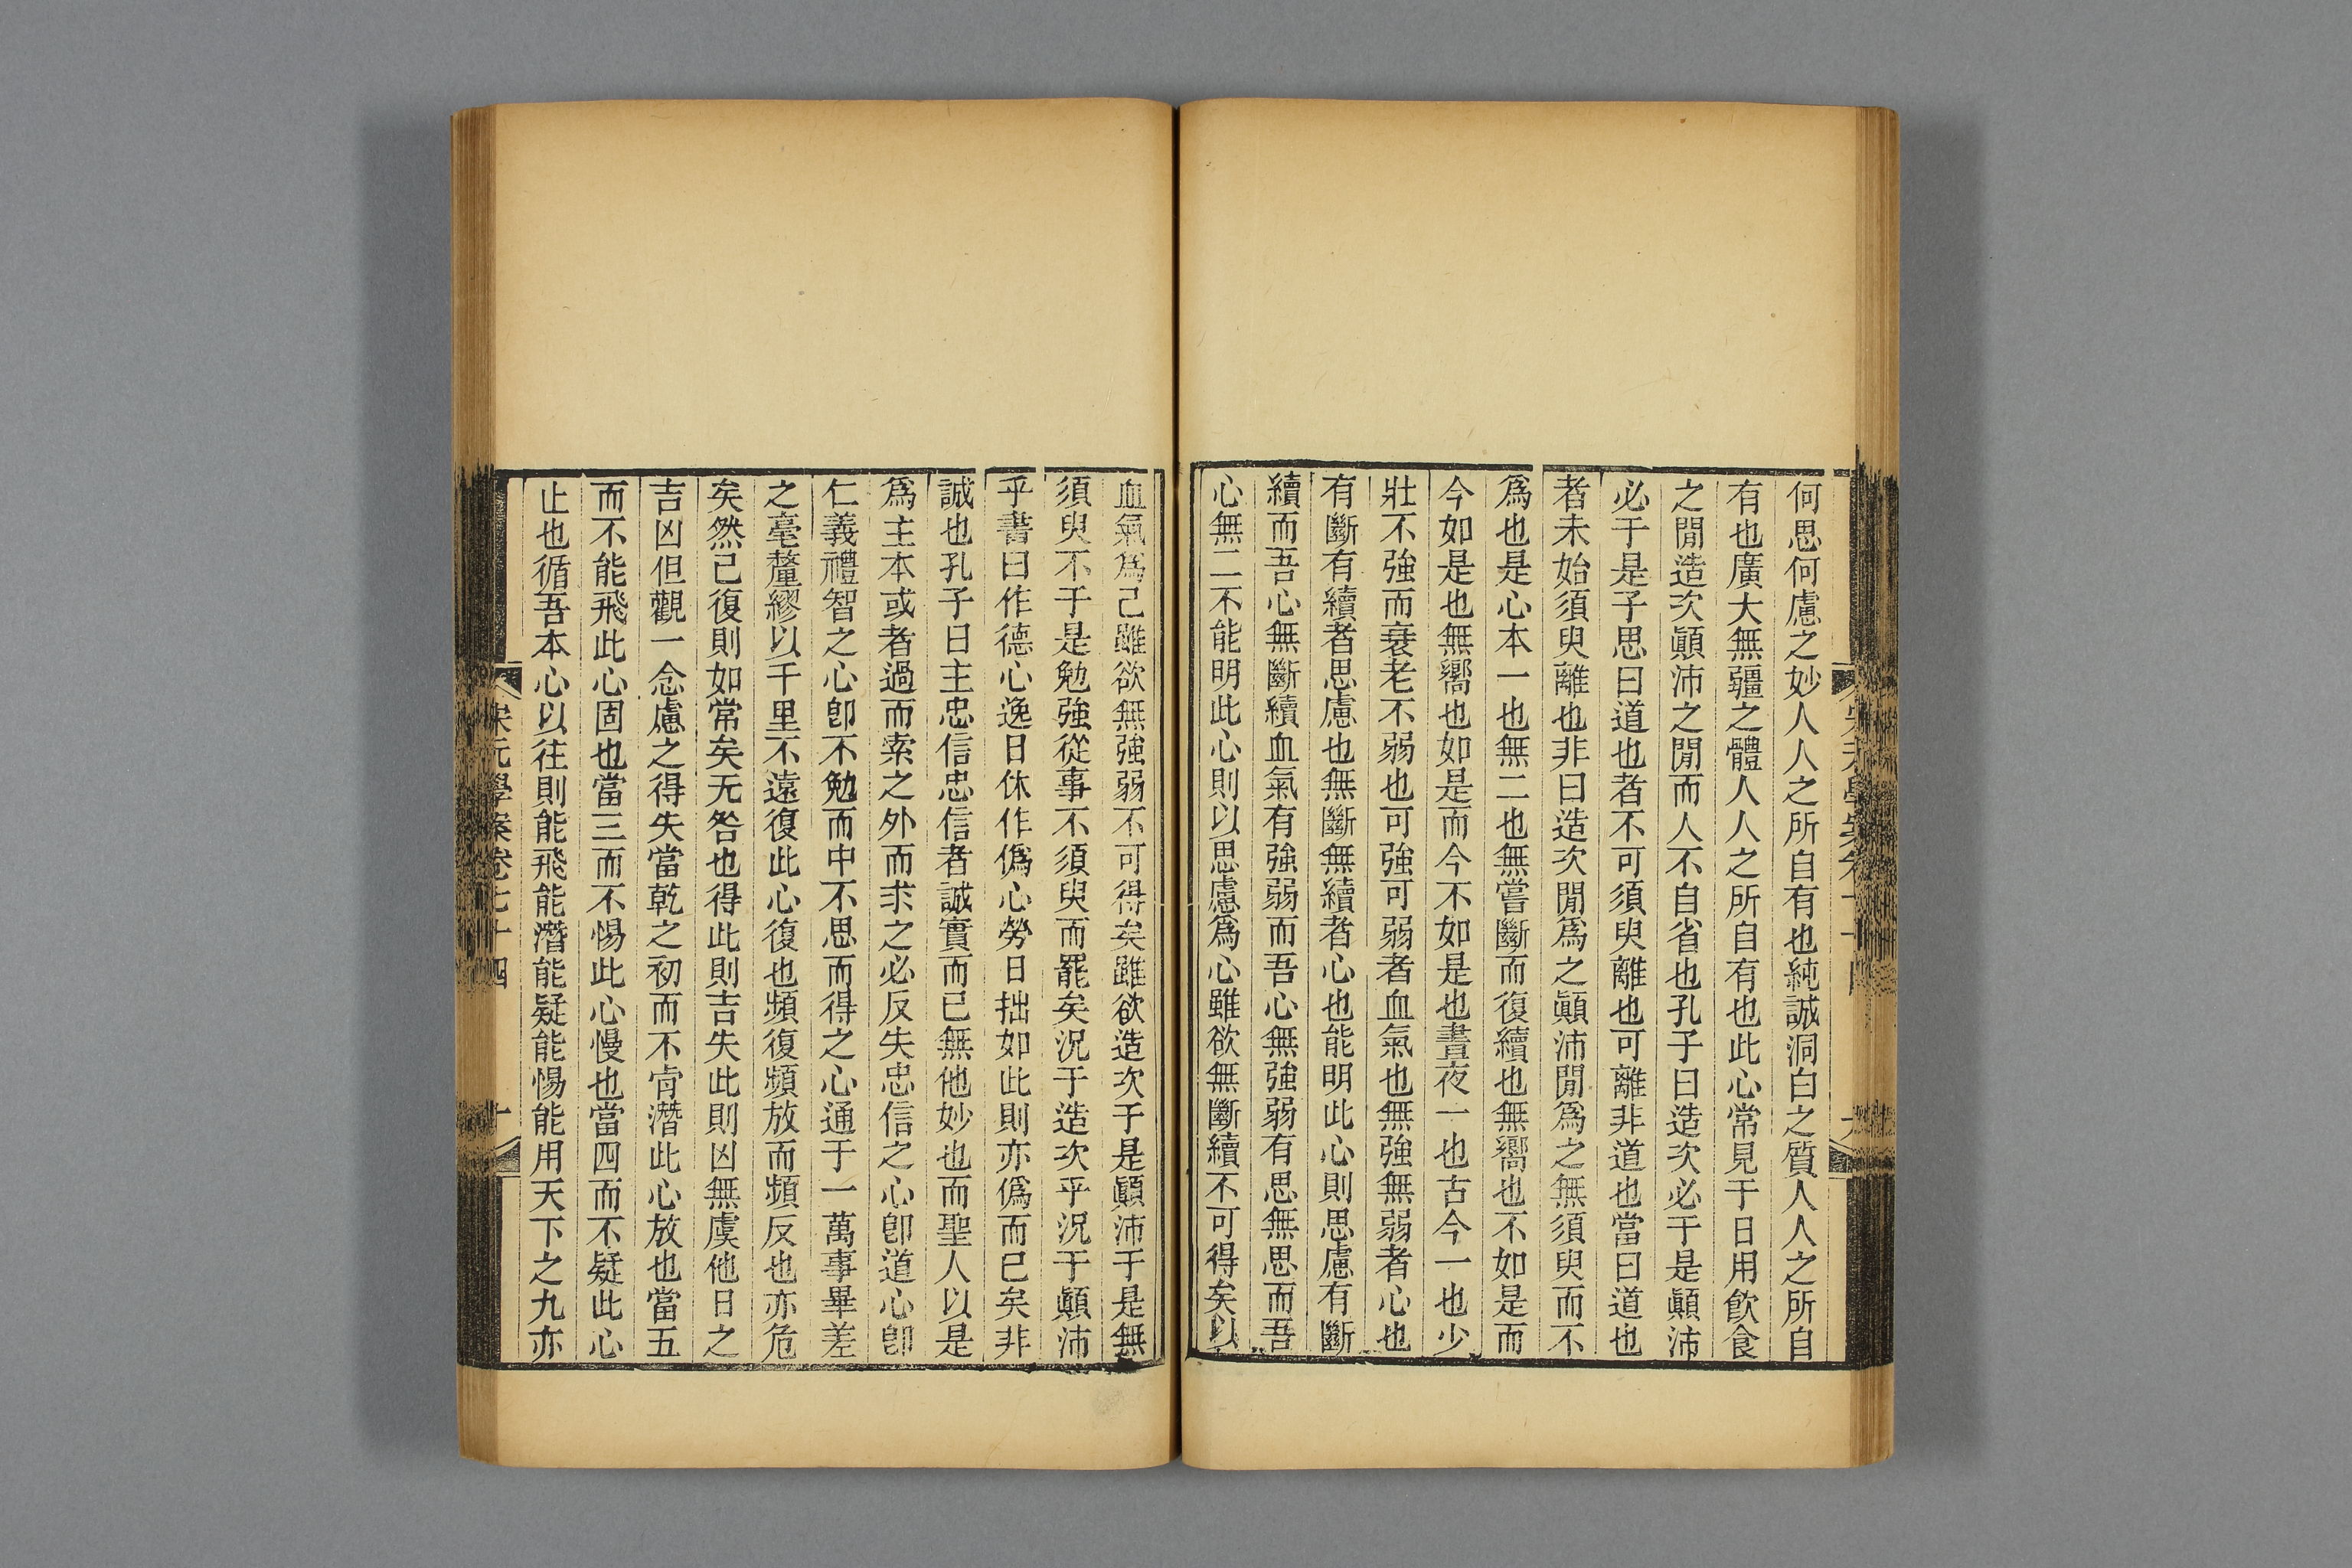 何思何慮之妙人人之所自有也純誠洞白之質人人之所自
有也廣大無疆之體人人之所自有也此心常見于日用飮食
之閒造次顚沛之閒而人不自省也孔子曰造次必于是顚沛
必于是子思曰道也者不可須臾離也可離非道也當曰道也
者未始須臾離也非曰造次閒爲之顚沛閒爲之無須臾而不
爲也是心本一也無二也無嘗斷而復續也無嚮也不如是而
今如是也無嚮也如是而今不如是也晝夜一也古今一也少
壯不強而衰老不弱也可強可弱者血氣也無強無弱者心也
有斷有續者思慮也無斷無續者心也能明此心則思慮有斷
續而吾心無斷續血氣有強弱而吾心無強弱有思無思而吾
心無二不能明此心則以思慮爲心雖欲無斷續不可得矣以
血氣爲己雖欲無強弱不可得矣雖欲造次于是顚沛于是無
須臾不于是勉強從事不須臾而罷矣況于造次乎況于顚沛
乎書曰作德心逸日休作僞心勞日拙如此則亦僞而已矣非
誠也孔子曰主忠信忠信者誠實而已無他妙也而聖人以是
爲主本或者過而索之外而求之必反失忠信之心卽道心卽
仁義禮智之心卽不勉而中不思而得之心通于一萬事畢差
之毫釐繆以千里不遠復此心復也頻復頻放而頻反也亦危
矣然已復則如常矣无咎也得此則吉失此則凶無虞他日之
吉凶但觀一念慮之得失當乾之初而不肯潛此心放也當五
而不能飛此心固也當三而不惕此心慢也當四而不疑此心
止也循吾本心以往則能飛能潛能疑能惕能用天下之九亦
宋元學案卷七十四
十